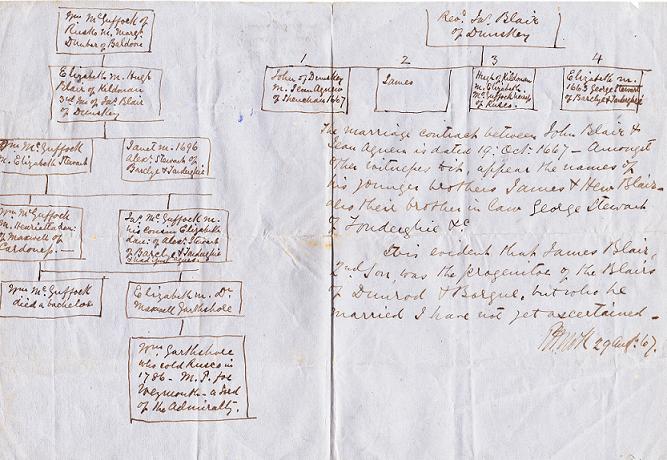 Wm McGuffock of
Rusko m. Margt
Dunbar of Baldoon
Elizabeth m. Hugh
Blair of Kildonan
3rd Son of Jas. Blair
of Dunskey
Wm McGuffock
m. Elizabeth Stewart
Janet m. 1696
Alexr. Stewart of
Barclye & Tonderghie
Wm McGuffock
m. Henrietta dau:
of Maxwell of
Cardoness.
Jas. McGuffock m.
his cousin Elizabeth
dau: of Alexr. Stewart
of Barclye & Tonderghie
Wm McGuffock
died a bachelor
Elizabeth m. Dr.
Maxwell Garthshore
Wm. Garthshore
who sold Rusco in
1786 - M.P. for
Weymouth - a Lord
of the Admiralty.
Revd. Jas. Blair
of Dunskey
1
John of Dunskey
m. Jean Agnew
of Lochnaw 1667
2
James
3
Hugh of Kildonan
m. Elizabeth
McGuffock
of Rusco.
4
Elizabeth m.
1663 George Stewart
of Barclye & Tonderghie
The marriage contract between John Blair &
Jean Agnew is dated 19: Oct: 1667 - Amongst
other witnesses to it, appear the names of
his younger brothers James & Hew Blair -
also their brother in law George Stewart
of Tonderghie &c
It is evident that James Blair,
2nd Son, was the progenitor of the Blairs
of Dunrod & Borgue, but who he
married I have not yet ascertained -
29 67.